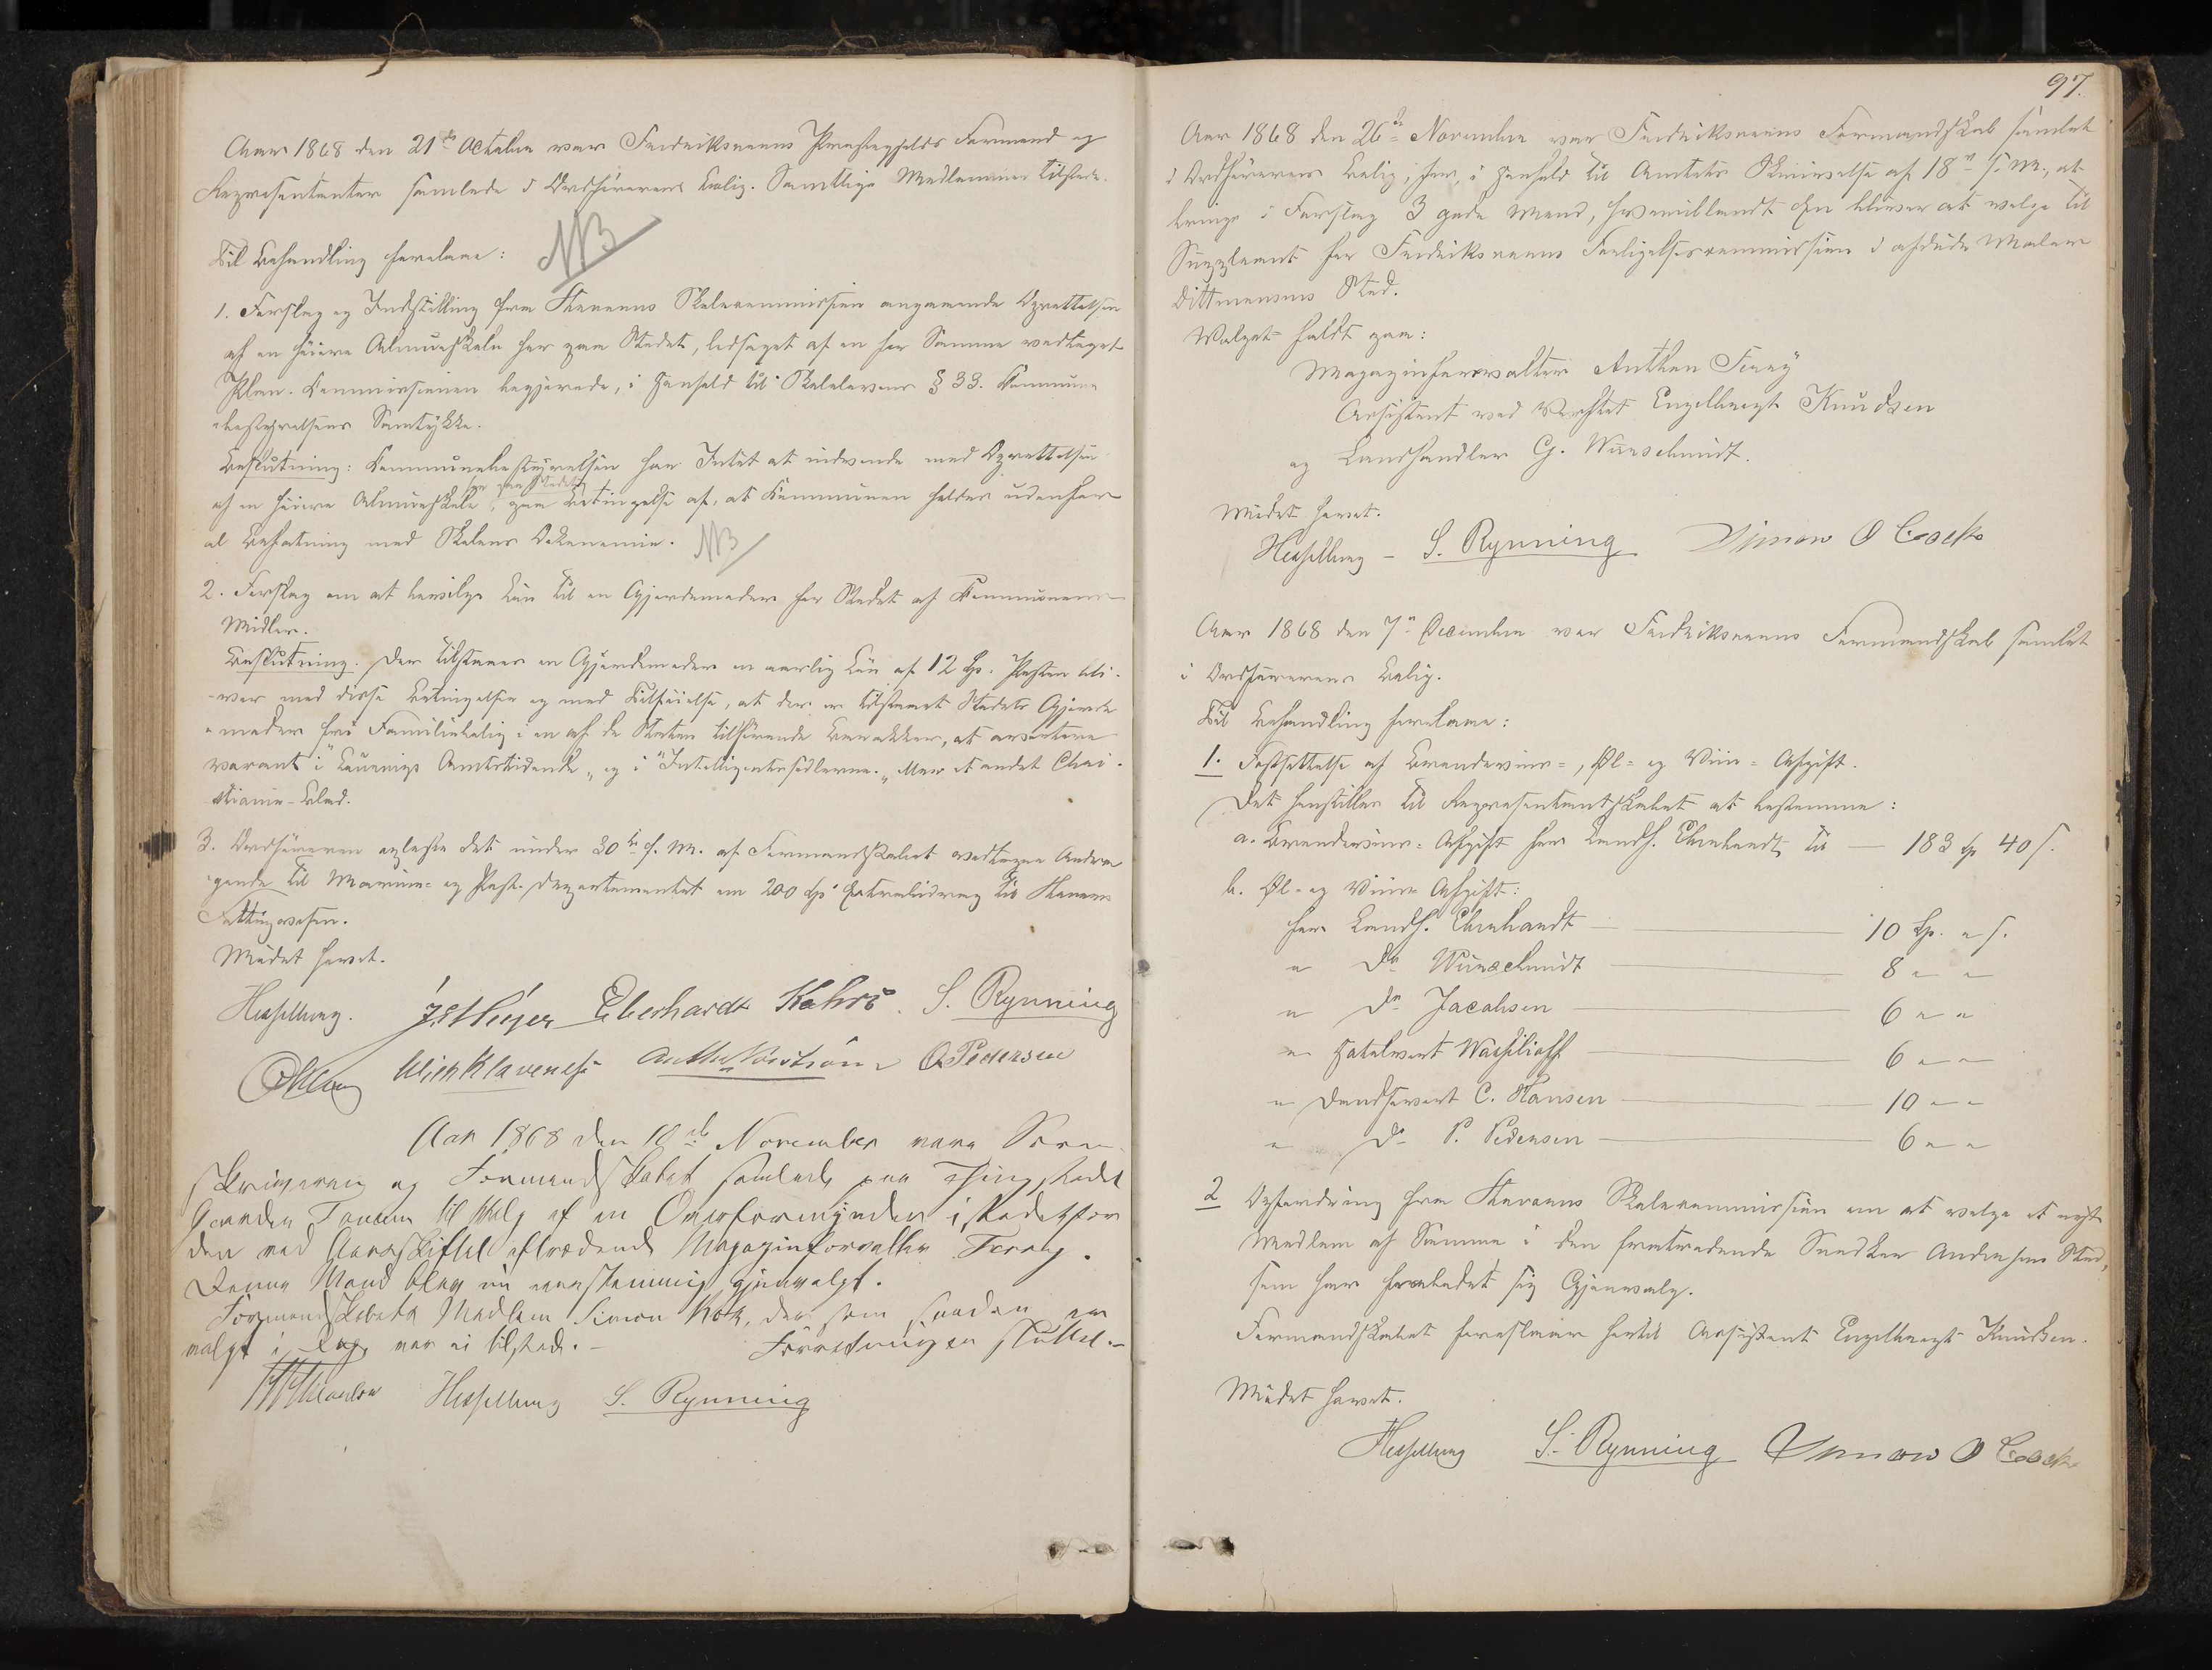 Aar 1868 den 21de October var Fredriksværns Præstegjelds Formænd og
Repræsentanter samlede i Ordførerens Bolig. Samtlige Medlemmer tilstede.
Til Behandling forelaae:
NB
1. Forslag og Indstilling fra Staværns Skolecommission angaaende Oprettelsen
af en høiere Almueskole her paa Stedet, ledsaget af en for Samme vedtaget
Plan. Commissionen begjærede, i Henhold til Skolelovens § 33. Kommune
bestyrelsens Samtykke.
Beslutning: Kommunebestyrelsen har Intet at indvende mod Oprettelsen
her paa Stedet
af en høiere Almueskole, paa Betingelse af, at Kommunen holdes udenfor
al Befatning med Skolens Oekonomie.
NB
2. Forslag om at bevilge Løn til en Gjordemoder her Stedet af Kommunens
Midler.
Beslutning. Der tilstaaes en Gjordemoder en aarlig Løn af 12 Sp. Posten bli-
ver med disse Betingelser og med Tilføielse, at der er tilstaaet Stedets Gjorde
moder fri Familiebolig i en af de Staten tilhørende Barakker, at avertere
vacant i "Laurvigs Amtstidende" og i "Intelligentssedlerne" eller et andet Chri-
stiania-Blad.
3. Ordføreren oplæste det under 30te f. M. af Formandskabet vedtagne Andra
gende til Marine- og Post-Departementet om 200 Sp Extrabidrag til Staværns
Fattigvæsen.
Mødet hævet.
Hesselberg. J. S. Meyer Eberhardt Kahrs. S. Rynning
Ulrik Klavenes O. Pedersen
Aar 1868 den 18de November vare Soren-
skriveren og Formandskabet samlede paa Thingstedet
Gaarden Tanum til Valg af en Overformynder istedetfor
den ved Aarsskiftet aftrædende Magazinforvalter Ferøy.
Denne Mand blev nu eenstemmig gjenvalgt.
Formandskabets Medlem Simon Kok, der som saadan er
valgt i Dag, var ei tilstede. – Forretningen sluttet. –
Hesselberg S. Rynning
97.
Aar 1868 den 26de November var Fredriksværns Formandskab samlet
i Ordførerens Bolig, for, i Henhold til Amtets Skrivelse af 18de s. M., at
bringe i Forslag 3 gode Mænd, hvoriblandt Een bliver at vælge til
Suppleant for Fredriksværns Forligelsescommission i afdøde Maler
Dittmansens Sted.
Valget faldt paa:
Magazinforvalter Anthon Ferøy
Assistent ved Værftet Engelbregt Knudsen
og Landhandler G. Wurschmidt.
Mødet hævet.
Hesselberg – S. Rynning Simon O Cock
Aar 1868 den 7de December var Fredriksværns Formandskab samlet
i Ordførerens Bolig.
Til Behandling forelaae:
1. Fastsættelse af Brændeviins-, Øl- og Viin-Afgift.
Det henstilles til Repræsentantskabet at bestemme:
a. Brændeviins-Afgift for Landh. Eberhardt, til — 183 Sp 40 s.
b. Øl- og Viins Afgift:
for Landh. Eberhardt — 10 Sp. " s.
" Do Wurschmidt — 8 " "
" Do Jacobsen — 6 " "
" Hotelvert Wassilioff — 6 " "
" Dandsevert C. Hansen — 10 " "
" Do P. Pedersen — 6 " "
2 Opfordring fra Staværns Skolecommission om at vælge et nyt
Medlem af Samme i den fratrædende Snedker Andersens Sted,
som har frabedet sig Gjenvalg.
Formandskabet foreslaar hertil Assistent Engelbregt Knudsen.
Mødet hævet.
Hesselberg S. Rynning Simon O Cock